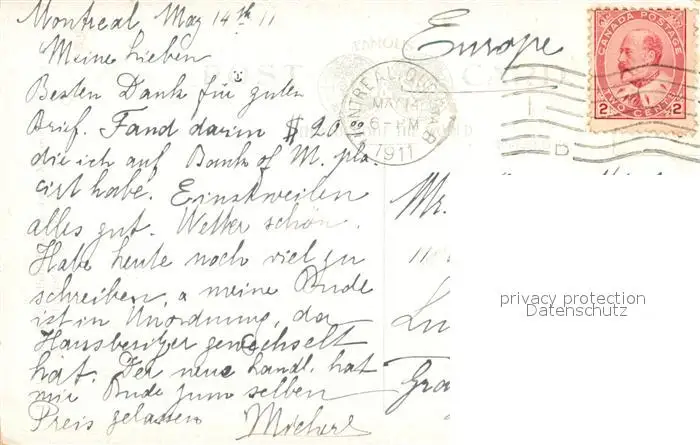 Montreal May 14th 11
Europe
Meine Lieben
Besten Dank für guten
Brief. Fand darin $20.00
die ich auf Bank of M. pla-
ciert habe. Einstweilen
alles gut. Wetter schön.
Habe heute noch viel zu
schreiben, & meine Bude
ist in Unordnung, da
Hausbesitzer gewechselt
hat. Der neue Landl. hat
mir Bude zum selben
Preis gelassen
Michel
POST CARD
FAMOUS
MONTREAL, QUE.
MAY 14
6-PM
1911
B
CANADA POSTAGE
2 TWO CENTS 2
Mr.
Lu
Gra
privacy protection
Datenschutz